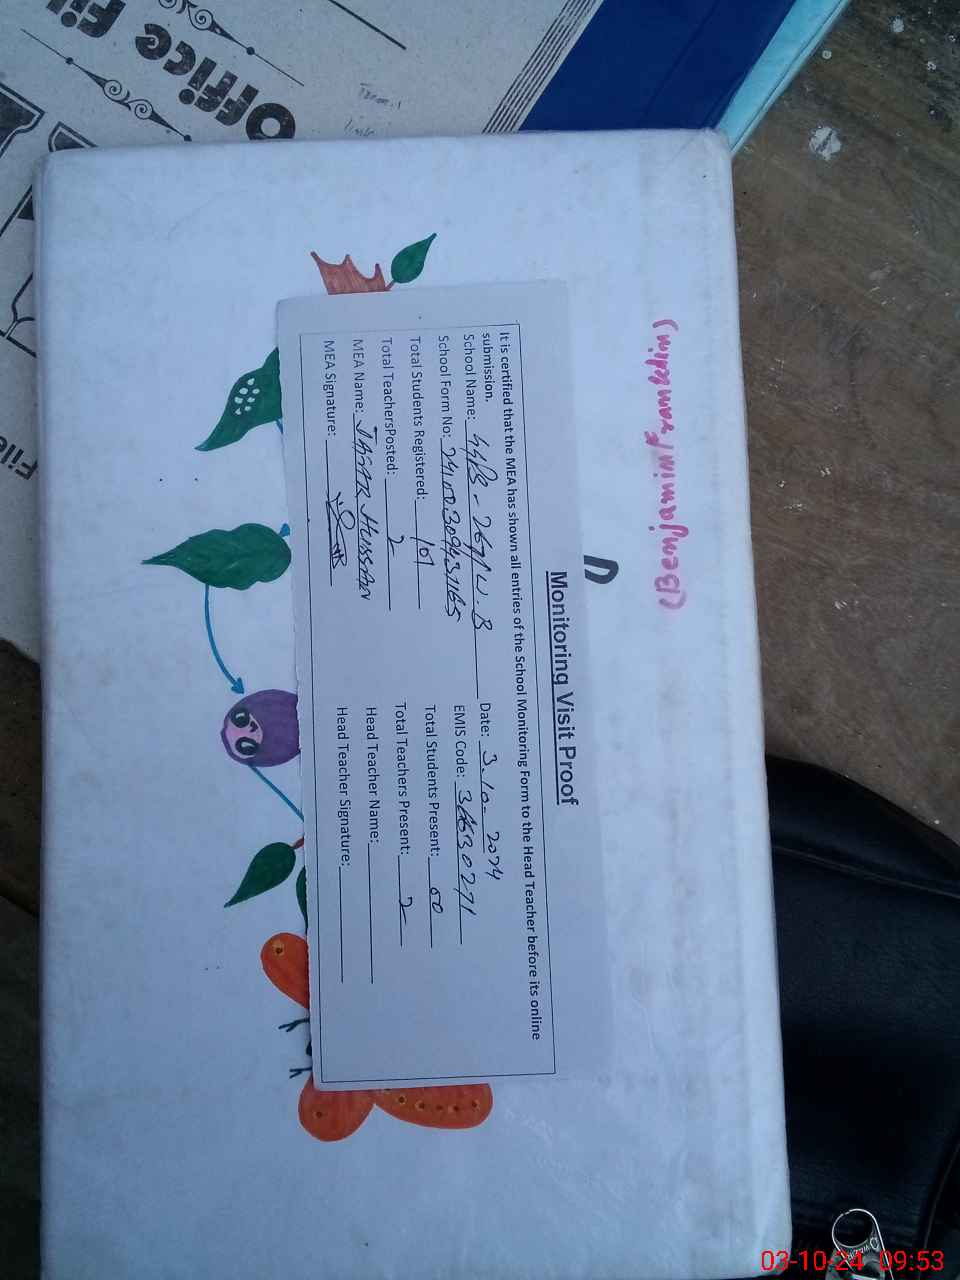 Office Fil
File
(Benjamin Framklin)
D
Monitoring Visit Proof
It is certified that the MEA has shown all entries of the School Monitoring Form to the Head Teacher before its online
submission.
School Name: GGPS - 267/W.B Date: 3.10-2024
School Form No: EMIS Code: 36630271
Total Students Registered: 101 Total Students Present: 60
Total TeachersPosted: 2 Total Teachers Present: 2
MEA Name: JAFAR HUSSAN Head Teacher Name:
MEA Signature: Head Teacher Signature:
03-10-24 09:53